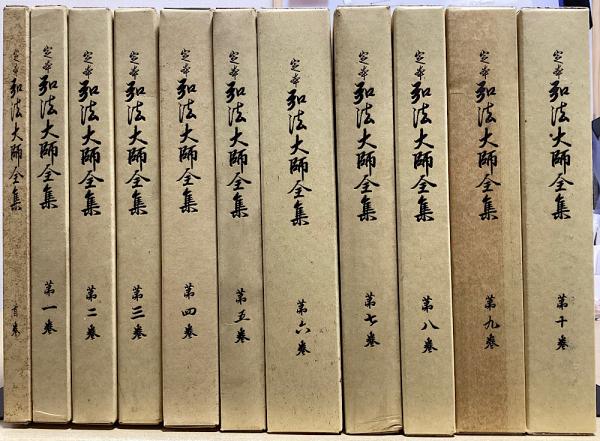 定本 弘法大師全集 首巻
定本 弘法大師全集 第一巻
定本 弘法大師全集 第二巻
定本 弘法大師全集 第三巻
定本 弘法大師全集 第四巻
定本 弘法大師全集 第五巻
定本 弘法大師全集 第六巻
定本 弘法大師全集 第七巻
定本 弘法大師全集 第八巻
定本 弘法大師全集 第九巻
定本 弘法大師全集 第十巻